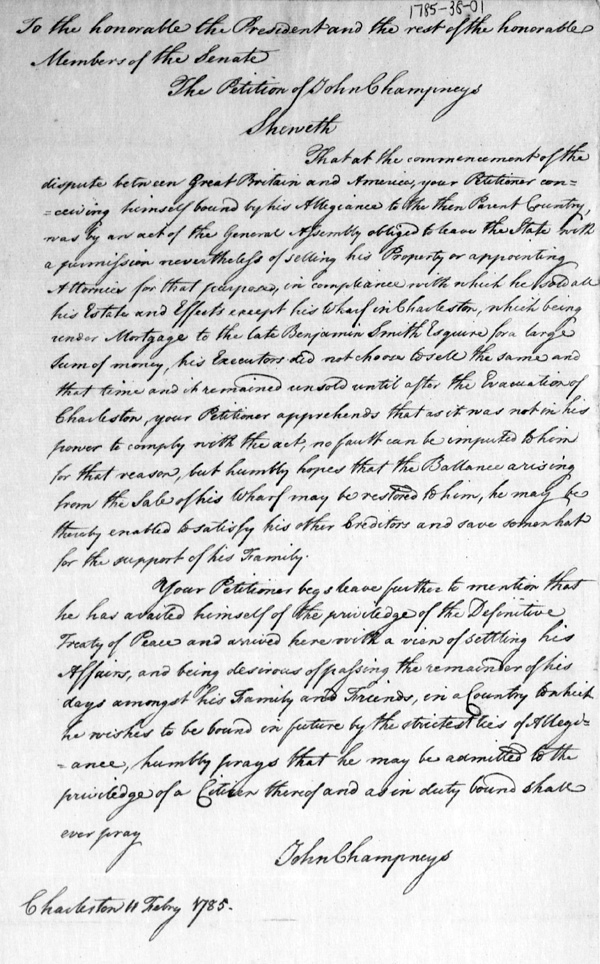 1785-38-01
To the honorable the President and the rest of the honorable
Members of the Senate
The Petition of John Champneys
Sheweth
That at the commencement of the
dispute between Great Britain and America, your Petitioner con=
=ceiving himself bound by his Allegiance to the then Parent Country,
was by an act of the General Assembly obliged to leave the State with
a permission nevertheless of selling his Property or appointing
Attornies for that purpose, in compliance with which he sold all
his Estate and Effects except his Wharf in Charleston, which being
under Mortgage to the late Benjamin Smith Esquire for a large
Sum of money, his Executors did not choose to sell the same and
that time and it remained unsold until after the Evacuation of
Charleston, your Petitioner apprehends that as it was not in his
power to comply with the act, no fault can be imputed to him
for that reason, but humbly hopes that the Ballance arising
from the Sale of his Wharf may be restored to him, he may be
thereby enabled to satisfy his other Creditors and save somewhat
for the support of his Family.
Your Petitioner begs leave further to mention that
he has availed himself of the priviledge of the Definitive
Treaty of Peace and arrived here with a view of Settling his
Affairs, and being desirous of passing the remainder of his
days amongst his Family and Friends, in a Country to which
he wishes to be bound in future by the strictest ties of Allegi=
=ance, humbly prays that he may be admitted to the
priviledge of a Citizen thereof and as in duty bound shall
ever pray
John Champneys
Charleston 11 Febry 1785.